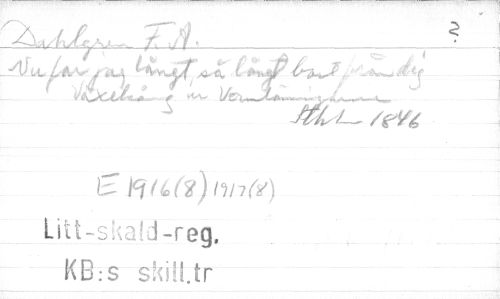 Dahlgren F. A. ?
Nu far jag långt, så långt bort från dig
Växelsång ur Vermlänningarne
Sthlm 1846
E 1916(8) 1917(8)
Litt-skald-reg.
KB:s skill.tr